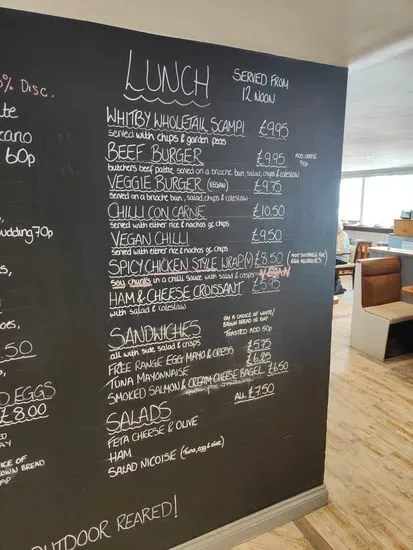 % Disc.
LUNCH
SERVED FROM
12 NOON
WHITBY WHOLETAIL SCAMPI £9.95
served with chips & garden peas
BEEF BURGER £9.95 ADD CHEESE 50p
butchers beef pattie served on a brioche bun, salad, chips & coleslaw
VEGGIE BURGER (VEGAN) £9.75
served on a brioche bun, salad, chips & coleslaw
CHILLI CON CARNE £10.50
served with either rice & nachos or chips
VEGAN CHILLI £9.50
served with either rice & nachos or chips
SPICY CHICKEN STYLE WRAP (V) £8.50 (NOT SUITABLE FOR EGG ALLERGIES)
soy chunks in a chilli sauce with salad & crisps VEGAN
HAM & CHEESE CROISSANT £5.95
with salad & coleslaw
SANDWICHES
all with side salad & crisps
ON A CHOICE OF WHITE/
BROWN BREAD OR BAP
TOASTED ADD 50p
FREE RANGE EGG MAYO & CRESS £5.75
TUNA MAYONNAISE £6.25
SMOKED SALMON & CREAM CHEESE BAGEL £6.50
SALADS ALL £7.50
FETA CHEESE & OLIVE
HAM
SALAD NICOISE (tuna, egg & olive)
60p
pudding 70p
.50
EGGS
£8.00
OUTDOOR REARED!